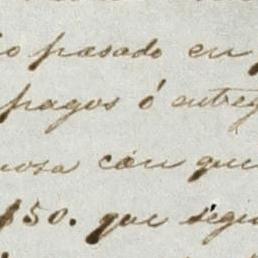 io pasado en
pagos ó entreg
nosa con que
$50. que segu